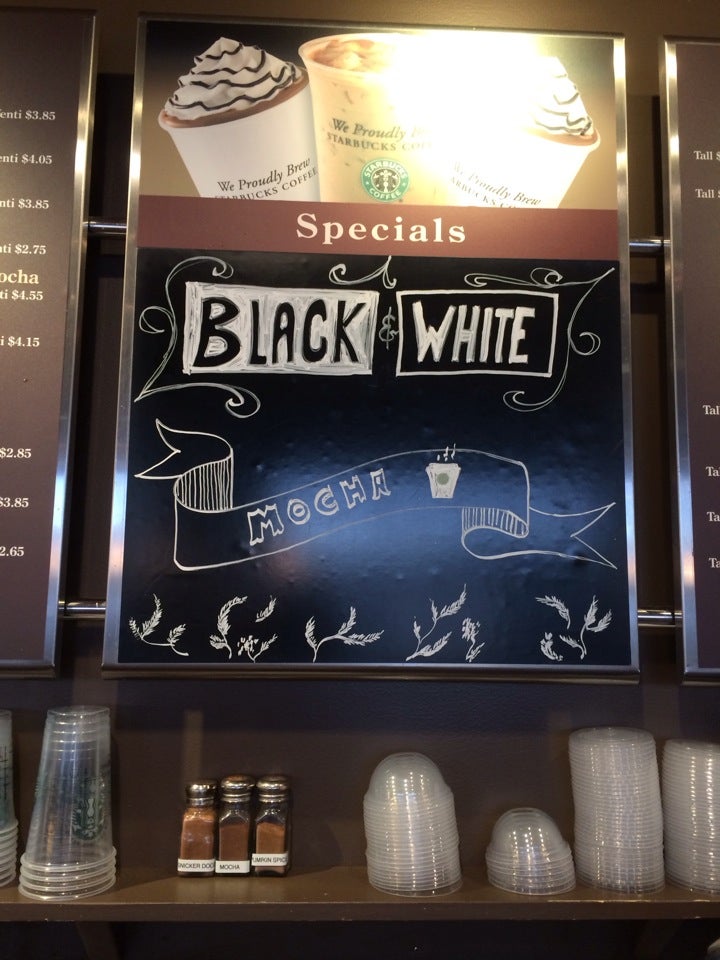 Venti $3.85
enti $4.05
nti $3.85
nti $2.75
ocha
ti $4.55
i $4.15
$2.85
$3.85
2.65
We Proudly Brew
STARBUCKS COFFEE
We Proudly B
STARBUCKS CO
STARBUCKS
COFFEE
We Proudly Brew
Specials
BLACK & WHITE
MOCHA
Tall $
Tall $
Tal
Ta
Ta
Ta
SNICKER DOO
MOCHA
PUMPKIN SPICE